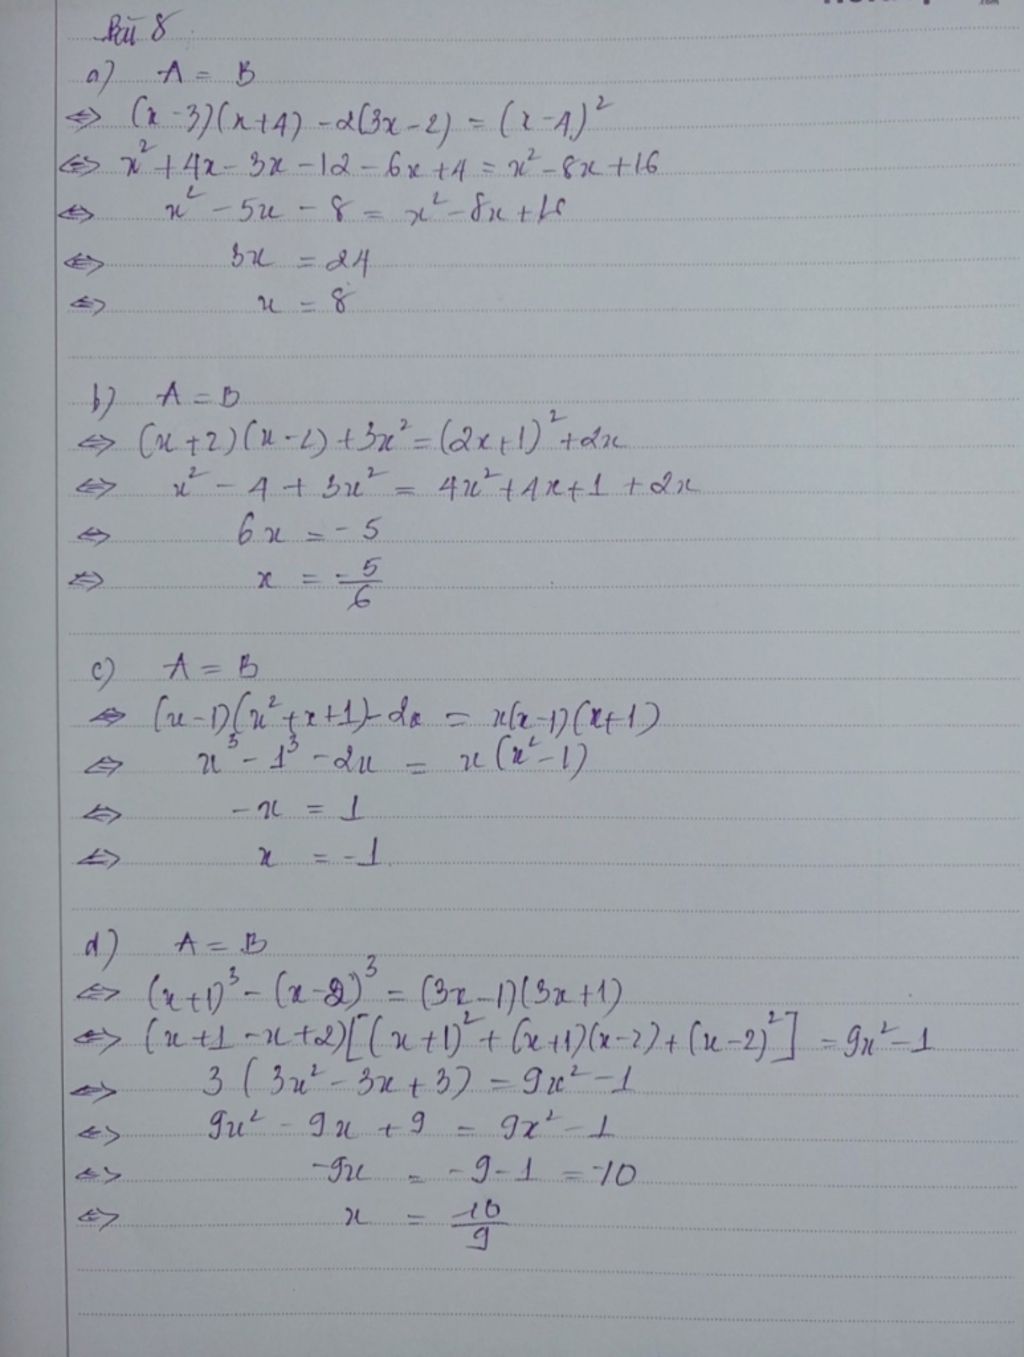 Bài 8
a) A = B
⇔ (x-3)(x+4) - 2(3x-2) = (x-4)²
⇔ x² + 4x - 3x - 12 - 6x + 4 = x² - 8x + 16
⇔ x² - 5x - 8 = x² - 8x + 16
⇔ 3x = 24
⇔ x = 8
b) A = B
⇔ (x+2)(x-2) + 3x² = (2x+1)² + 2x
⇔ x² - 4 + 3x² = 4x² + 4x + 1 + 2x
⇔ 6x = -5
⇔ x = -5/6
c) A = B
⇔ (x-1)(x²+x+1) - 2x = x(x-1)(x+1)
⇔ x³ - 1³ - 2x = x(x²-1)
⇔ -x = 1
⇔ x = -1
d) A = B
⇔ (x+1)³ - (x-2)³ = (3x-1)(3x+1)
⇔ (x+1-x+2)[(x+1)² + (x+1)(x-2) + (x-2)²] = 9x² - 1
⇔ 3(3x² - 3x + 3) = 9x² - 1
⇔ 9x² - 9x + 9 = 9x² - 1
⇔ -9x = -9-1 = -10
⇔ x = 10/9